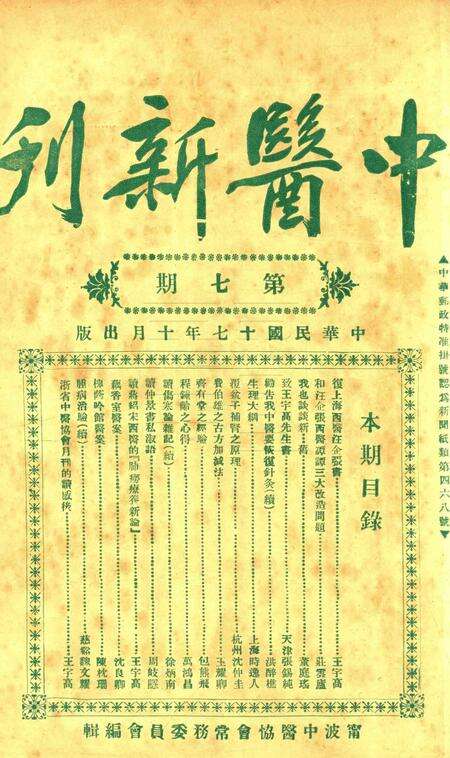 中醫新刊
第七期
中華民國十七年十月出版
▲中華郵政特准掛號認為新聞紙類第四六八號▼
本期目錄
復上海西醫汪企張書 王宇高
和汪企張西醫譚譚三大改造問題 莊雲廬
我也談談新舊 董庭瑤
致王宇高先生書 天津張錫純
勸告我中醫要恢復針灸(續) 洪醉樵
生理大綱 上海時逸人
覆盆子補腎之原理 杭州沈仲圭
費伯雄之古方加減法 王耀卿
齊有堂之經驗 包熊飛
程鍾齡之心得 萬鴻昌
讀傷寒論雜記(續) 徐炳南
讀仲景書私淑語 周岐隱
讀蔣紹宋西醫的『肺癆療養新論』 王宇高
藕香室醫案 沈良卿
槐蔭吟館醫案 陳枕珊
腫病治驗(續) 慈谿魏文耀
浙省中醫協會月刊的讀感後 王宇高
甯波中醫協會常務委員會編輯